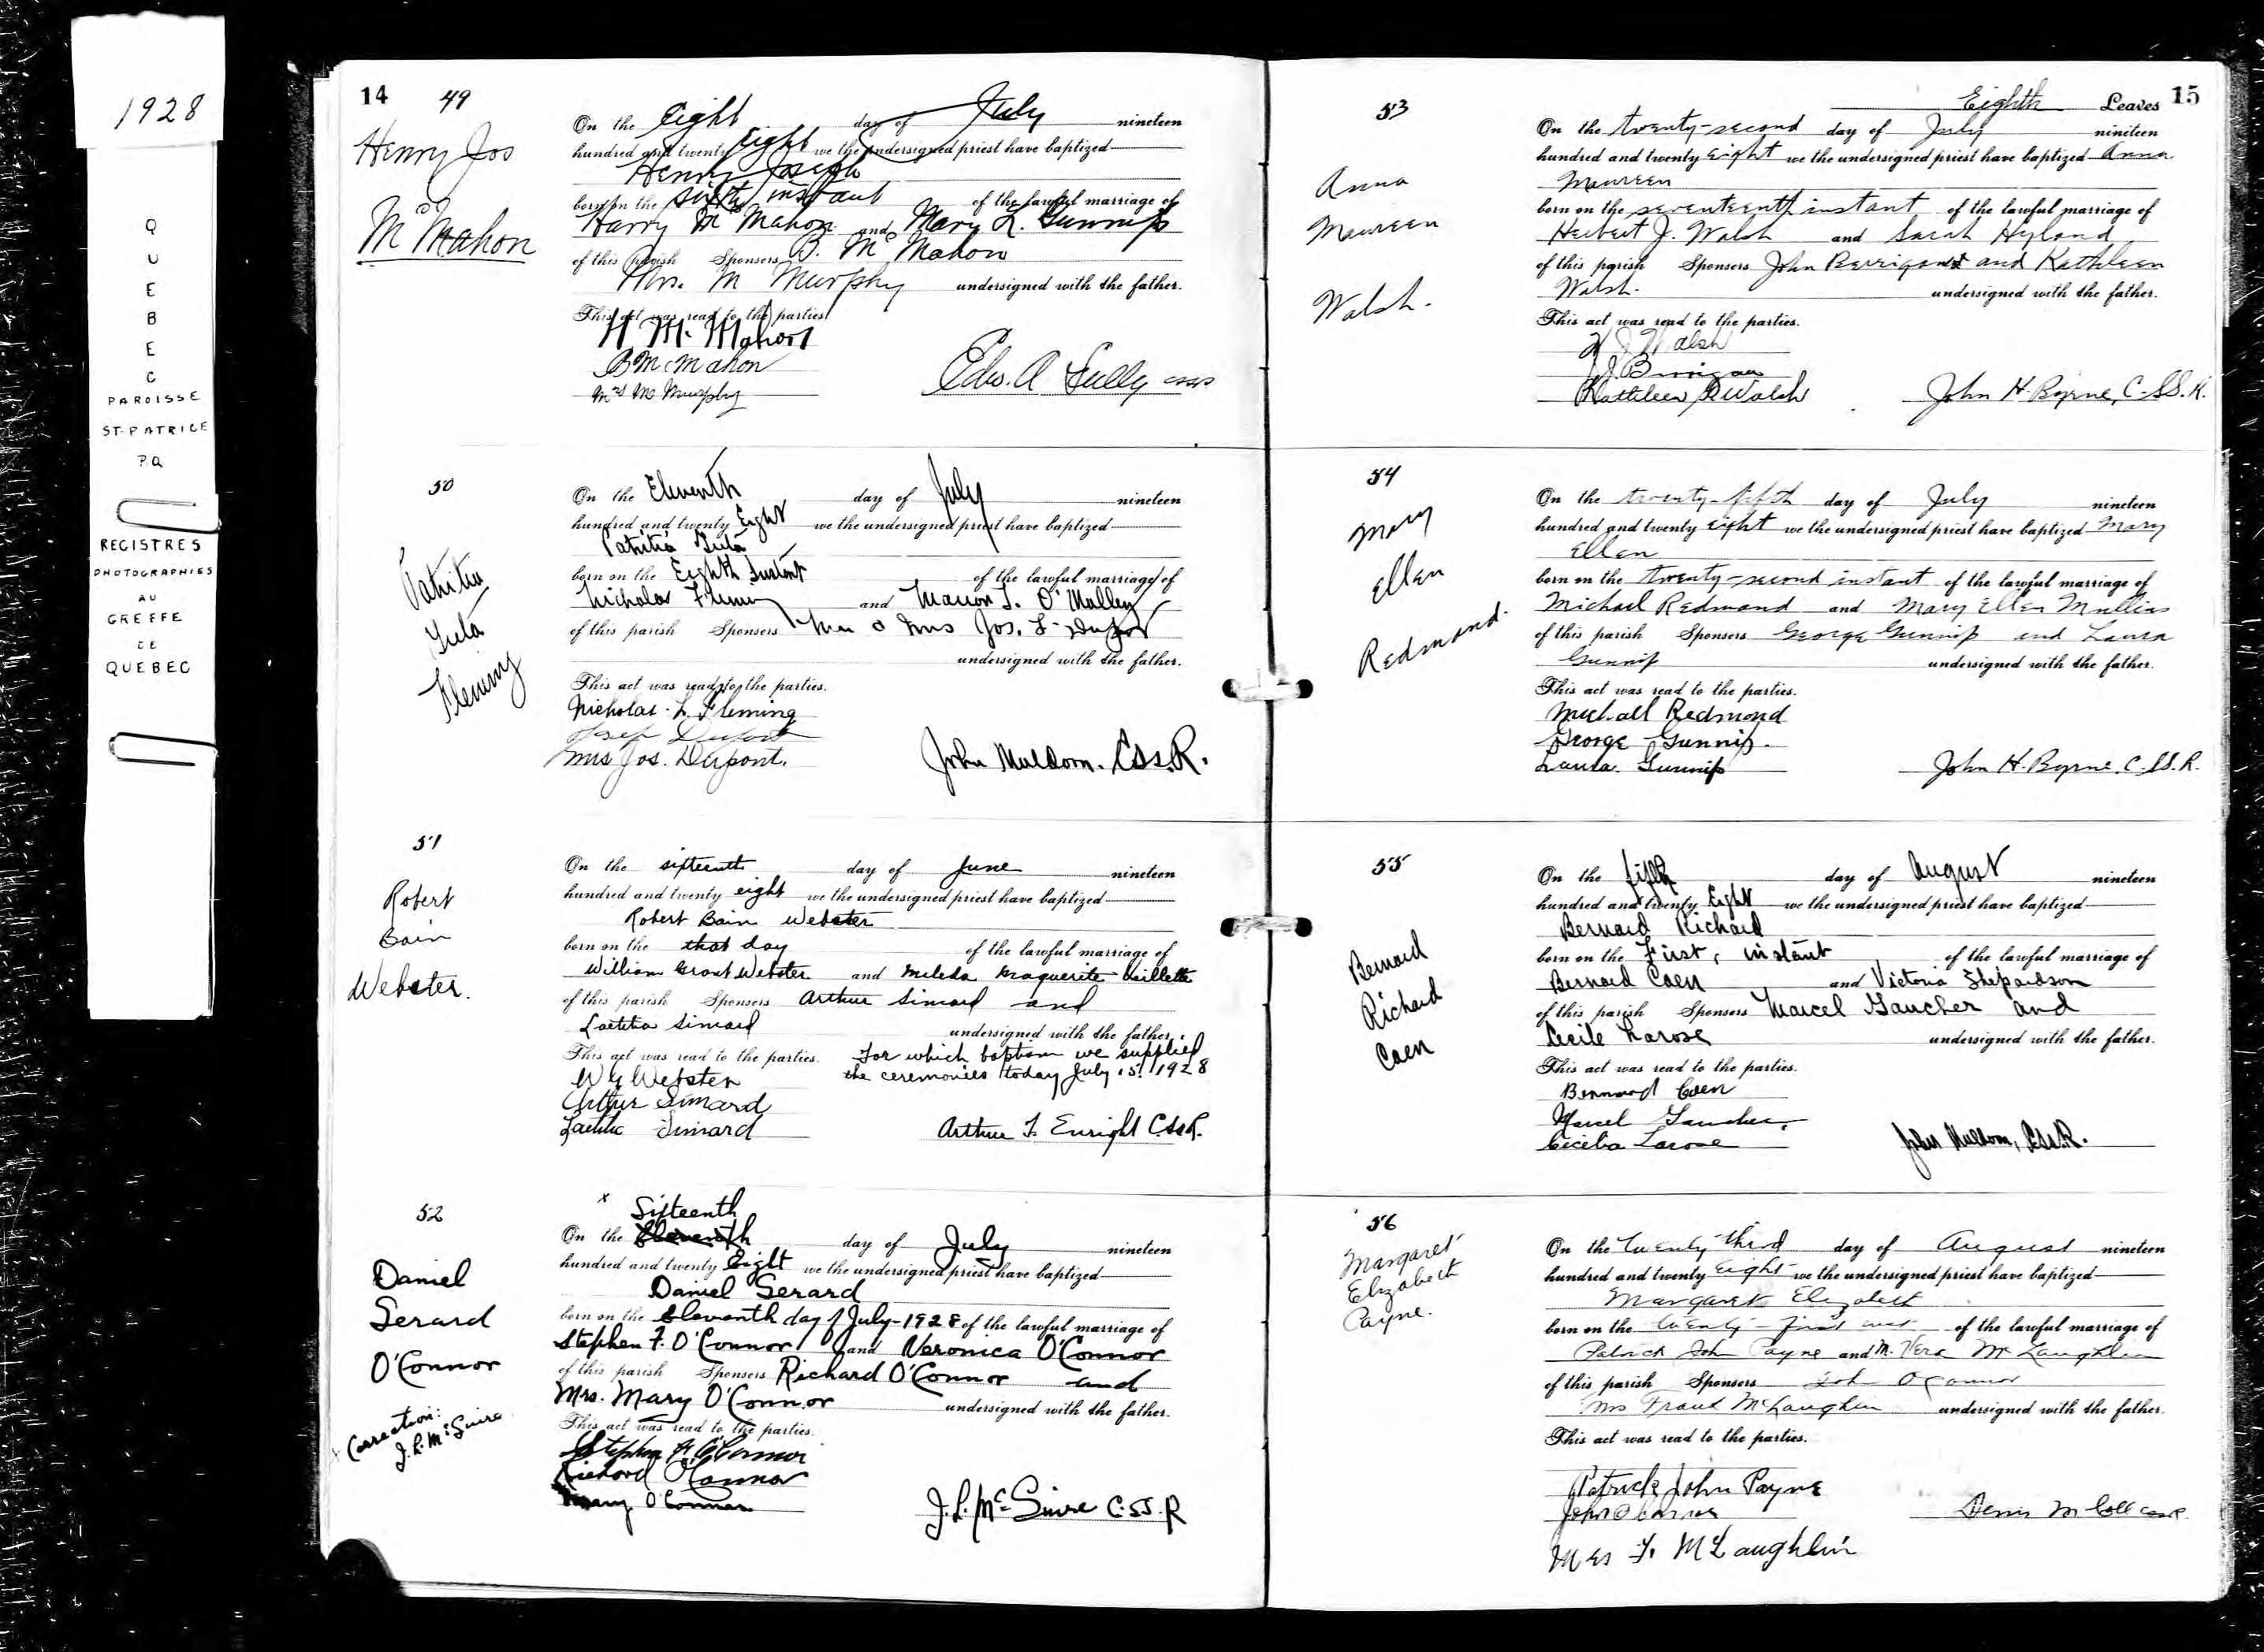 1928
QUEBEC
PAROISSE
ST-PATRICE
P.Q
REGISTRES
PHOTOGRAPHIES
AU
GREFFE
DE
QUEBEC
14
49
Henry Jos
McMahon
On the Eight day of July nineteen
hundred and twenty Eight we the undersigned priest have baptized
Henry Joseph
born on the sixth instant of the lawful marriage of
Harry McMahon and Mary L. Gunnip
of this parish Sponsors B. McMahon
Mrs. M Murphy undersigned with the father.
This act was read to the parties
H McMahon
B McMahon
Mrs M Murphy
Edw. A Scully CSSR
50
Patritia
Fleming
On the Eleventh day of July nineteen
hundred and twenty Eight we the undersigned priest have baptized
Patritia
born on the Eighth Instant of the lawful marriage of
Nicholas Fleming and Marion T. O'Malley
of this parish Sponsors Mr & Mrs Jos. L. Dupont
undersigned with the father.
This act was read to the parties.
Nicholas L. Fleming
Joseph Dupont
Mrs Jos. Dupont.
John Muldoon. C.Ss.R.
51
Robert
Bain
Webster.
On the sixteenth day of June nineteen
hundred and twenty eight we the undersigned priest have baptized
Robert Bain Webster
born on the that day of the lawful marriage of
William Grant Webster and Marguerite
of this parish Sponsors Arthur Simard and
Laetitia Simard undersigned with the father.
This act was read to the parties. For which baptism we supplied
the ceremonies today July 15. 1928
W G Webster
Arthur Simard
Laetitia Simard
Arthur T. Enright C.Ss.R.
52
Daniel
Gerard
O'Connor
x Correction:
J. L. McGuire
x Sixteenth
On the Eleventh day of July nineteen
hundred and twenty Eight we the undersigned priest have baptized
Daniel Gerard
born on the Eleventh day of July-1928 of the lawful marriage of
Stephen F. O'Connor and Veronica O'Connor
of this parish Sponsors Richard O'Connor and
Mrs. Mary O'Connor undersigned with the father.
This act was read to the parties.
Stephen F. O'Connor
Richard O'Connor
Mary O'Connor
J. L. McGuire C.SS.R
Eighth Leaves 15
53
Anna
Maureen
Walsh.
On the twenty-second day of July nineteen
hundred and twenty eight we the undersigned priest have baptized Anna
Maureen
born on the seventeenth instant of the lawful marriage of
Herbert J. Walsh and Sarah Hyland
of this parish Sponsors John Berrigan and Kathleen
Walsh. undersigned with the father.
This act was read to the parties.
H J Walsh
J. Berrigan
Kathleen Walsh
John H. Byrne, C.SS.R.
54
Mary
Ellen
Redmond.
On the twenty-fifth day of July nineteen
hundred and twenty eight we the undersigned priest have baptized Mary
Ellen
born on the twenty-second instant of the lawful marriage of
Michael Redmond and Mary Ellen Mullins
of this parish Sponsors George Gunnip and Laura
Gunnip undersigned with the father.
This act was read to the parties.
Michael Redmond
George Gunnip.
Laura Gunnip
John H. Byrne, C.SS.R.
55
Bernard
Richard
Caen
On the fifth day of August nineteen
hundred and twenty Eight we the undersigned priest have baptized
Bernard Richard
born on the First, instant of the lawful marriage of
Bernard Caen and Victoria Shepardson
of this parish Sponsors Marcel Gaucher and
Cecile Larose undersigned with the father.
This act was read to the parties.
Bernard Caen
Marcel Gaucher
Cecilia Larose
John Muldoon, C.Ss.R.
56
Margaret
Elizabeth
Payne.
On the twenty third day of August nineteen
hundred and twenty eight we the undersigned priest have baptized
Margaret Elizabeth
born on the twenty-first inst. of the lawful marriage of
Patrick John Payne and M. Vera McLaughlin
of this parish Sponsors John O'Connor
Mrs Frank McLaughlin undersigned with the father.
This act was read to the parties.
Patrick John Payne
John O'Connor
Mrs F. McLaughlin